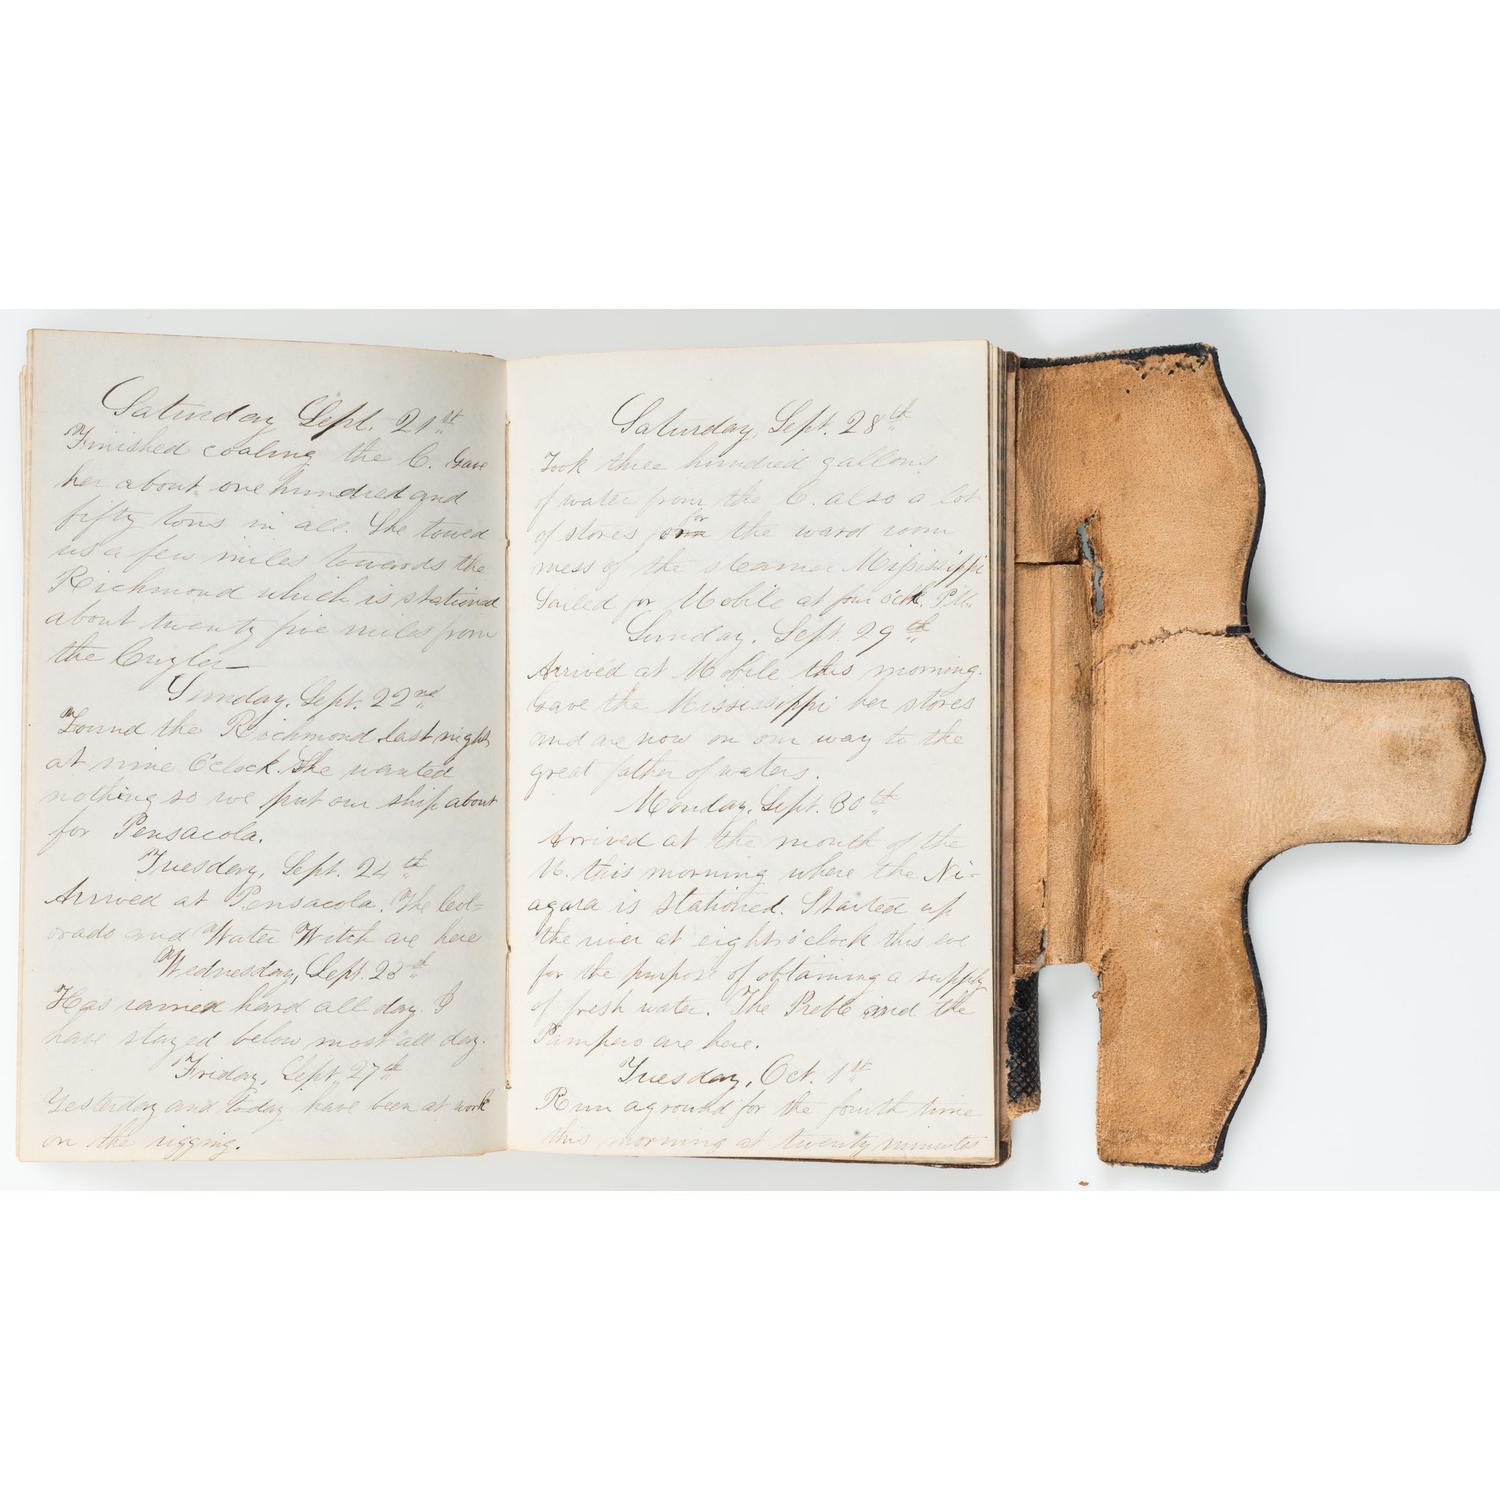 Saturday, Sept. 21st
Finished coaling the C. Gave
her about one hundred and
fifty tons in all. She towed
us a few miles towards the
Richmond which is stationed
about twenty five miles from
the Cuyler
Sunday, Sept. 22nd
Found the Richmond last night
at nine O'clock. She wanted
nothing so we put our ship about
for Pensacola.
Tuesday, Sept. 24th
Arrived at Pensacola. The Col-
orado and Water Witch are here
Wednesday, Sept. 25th
Has rained hard all day. I
have stayed below most all day.
Friday, Sept. 27th
Yesterday and today have been at work
on the rigging.
Saturday, Sept. 28th
Took three hundred gallons
of water from the C. also a lot
of stores for the ward room
mess of the steamer Mississippi
Sailed for Mobile at four o'clk. P.M.
Sunday, Sept. 29th
Arrived at Mobile this morning.
Gave the Mississippi her stores
and are now on our way to the
great father of waters.
Monday, Sept. 30th
Arrived at the mouth of the
M. this morning where the Ni-
agara is stationed. Started up
the river at eight o'clock this eve
for the purpose of obtaining a supply
of fresh water. The Preble and the
Pampero are here.
Tuesday, Oct. 1st
Run aground for the fourth time
this morning at twenty minutes